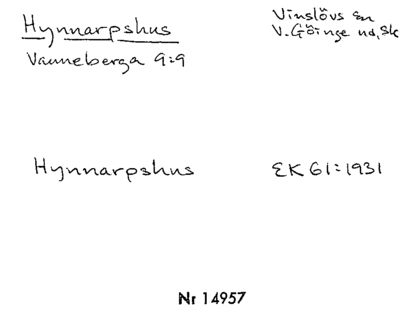 Hynnarpshus
Vinslövs sn
V. Göinge hd, Sk
Vanneberga 9:9
Hynnarpshus
EK 61:1931
Nr 14957